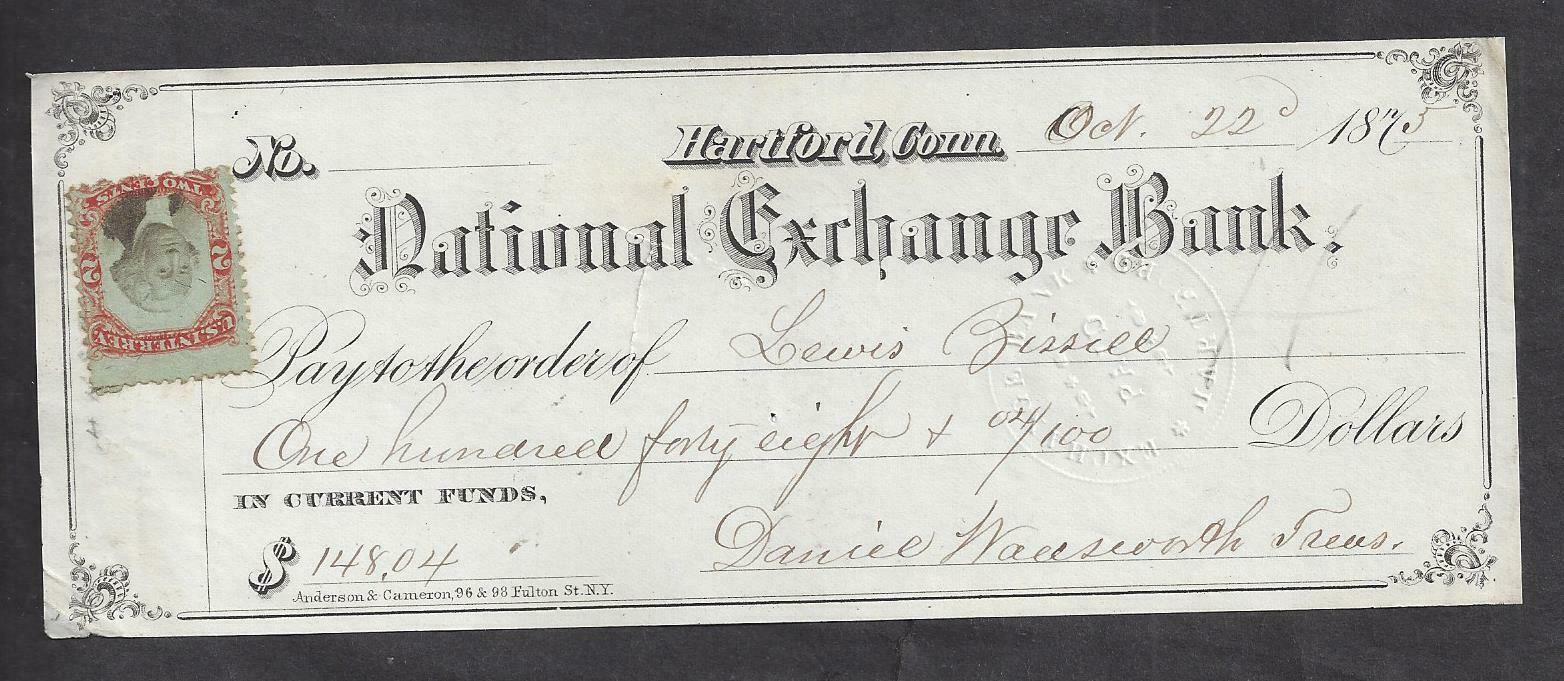 No. Hartford, Conn. Oct. 22d 1875
National Exchange Bank.
Pay to the order of Lewis Bissell
One hundred forty eight & 04/100 Dollars
IN CURRENT FUNDS,
$ 148.04 Daniel Wadsworth Treas.
Anderson & Cameron, 96 & 98 Fulton St. N.Y.
TWO CENTS
2 2
U.S. INTER. REV.